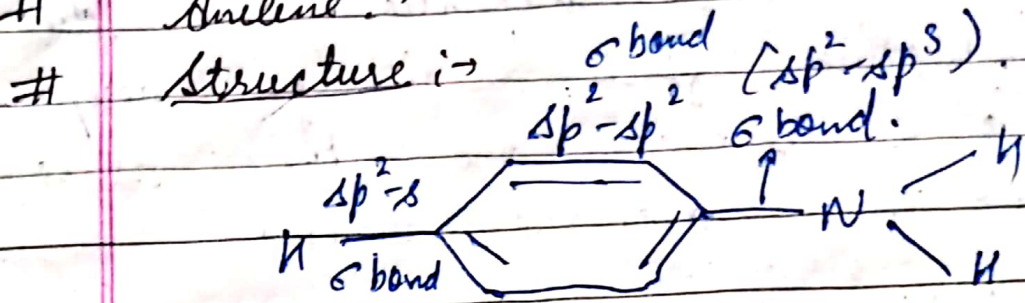 # Aniline.
# Structure :→ σ bond (sp²-sp³).
sp²-sp² σ bond.
sp²-s
H N H
σ bond H